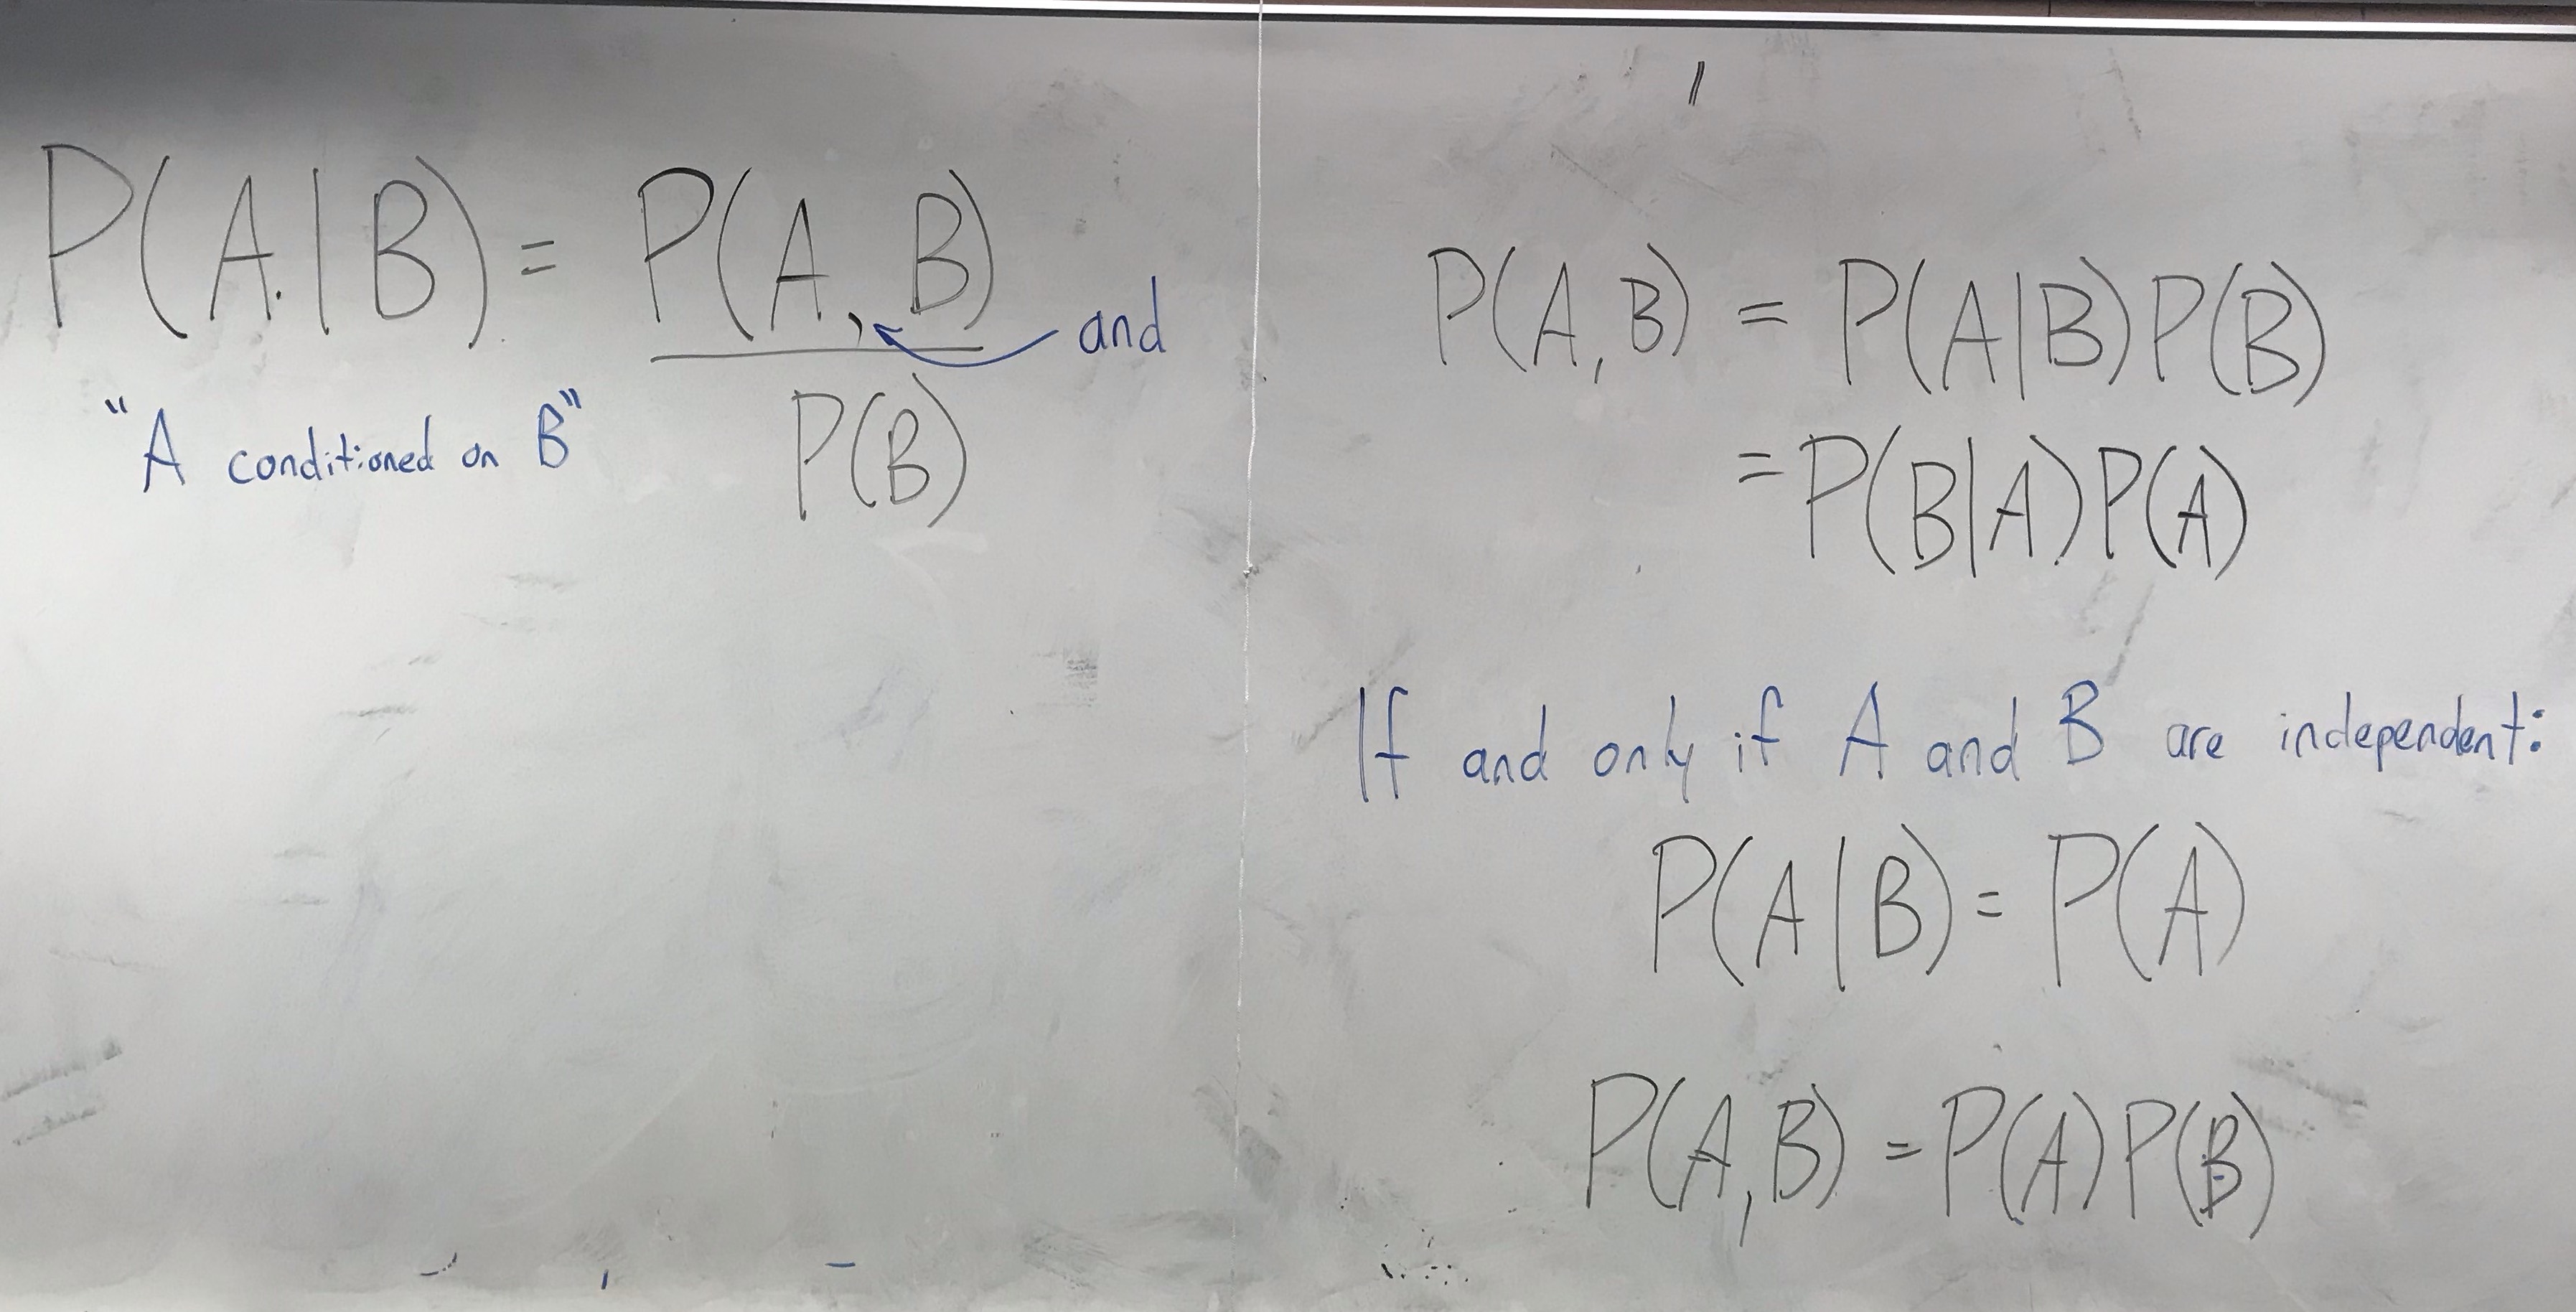 P(A|B) = P(A, B)
and
P(B)
"A conditioned on B"
P(A,B) = P(A|B)P(B)
= P(B|A)P(A)
If and only if A and B are independent:
P(A|B) = P(A)
P(A,B) = P(A)P(B)